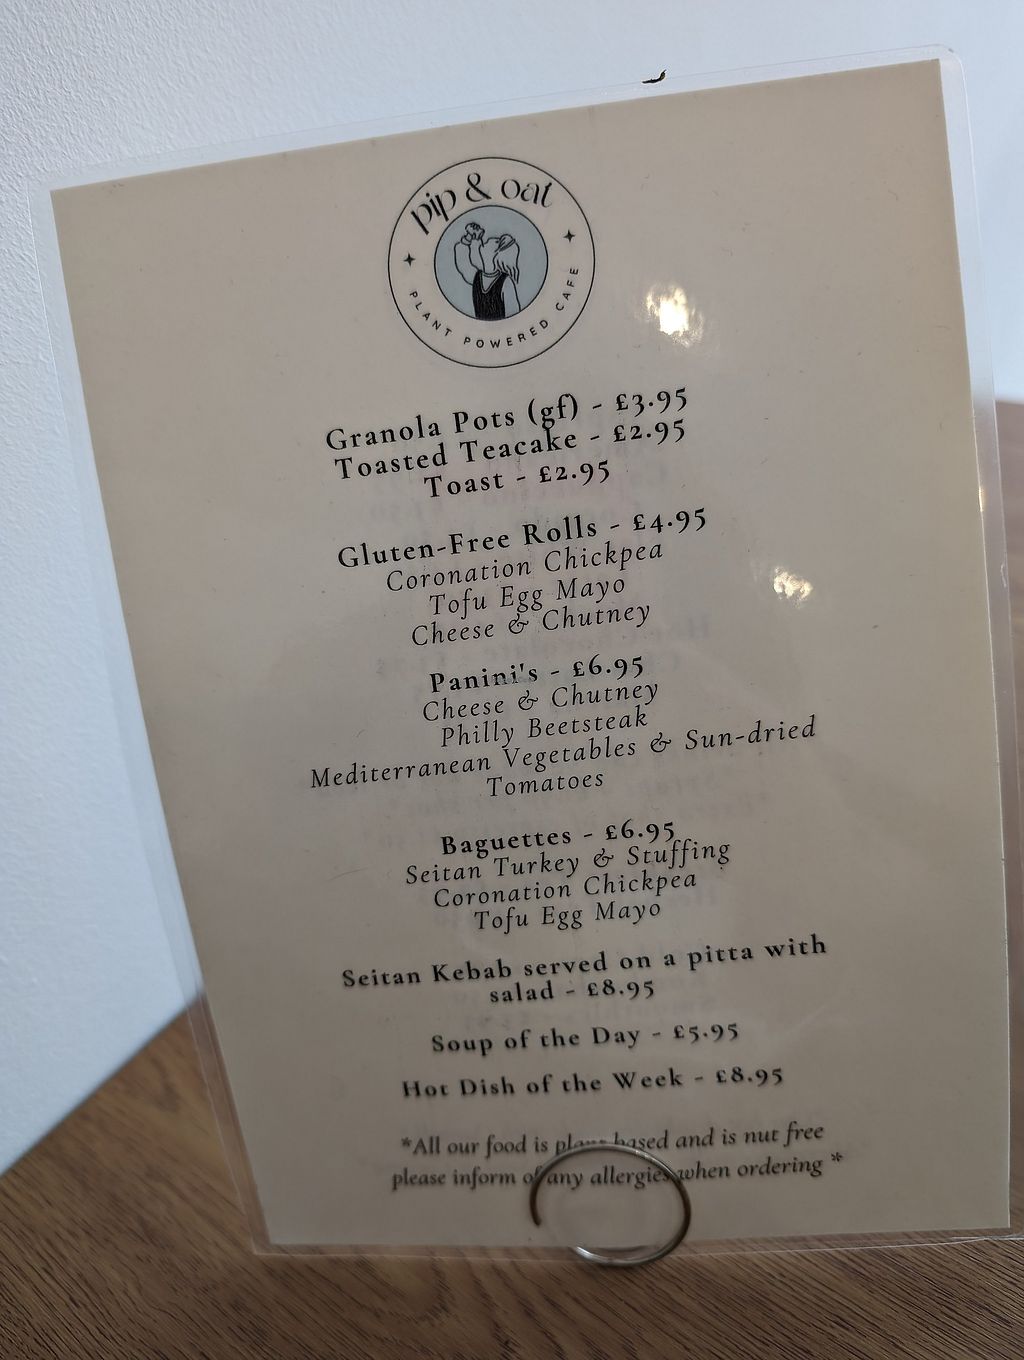 pip & oat
PLANT POWERED CAFE
Granola Pots (gf) - £3.95
Toasted Teacake - £2.95
Toast - £2.95
Gluten-Free Rolls - £4.95
Coronation Chickpea
Tofu Egg Mayo
Cheese & Chutney
Panini's - £6.95
Cheese & Chutney
Philly Beetsteak
Mediterranean Vegetables & Sun-dried
Tomatoes
Baguettes - £6.95
Seitan Turkey & Stuffing
Coronation Chickpea
Tofu Egg Mayo
Seitan Kebab served on a pitta with
salad - £8.95
Soup of the Day - £5.95
Hot Dish of the Week - £8.95
*All our food is plant based and is nut free
please inform of any allergies when ordering *